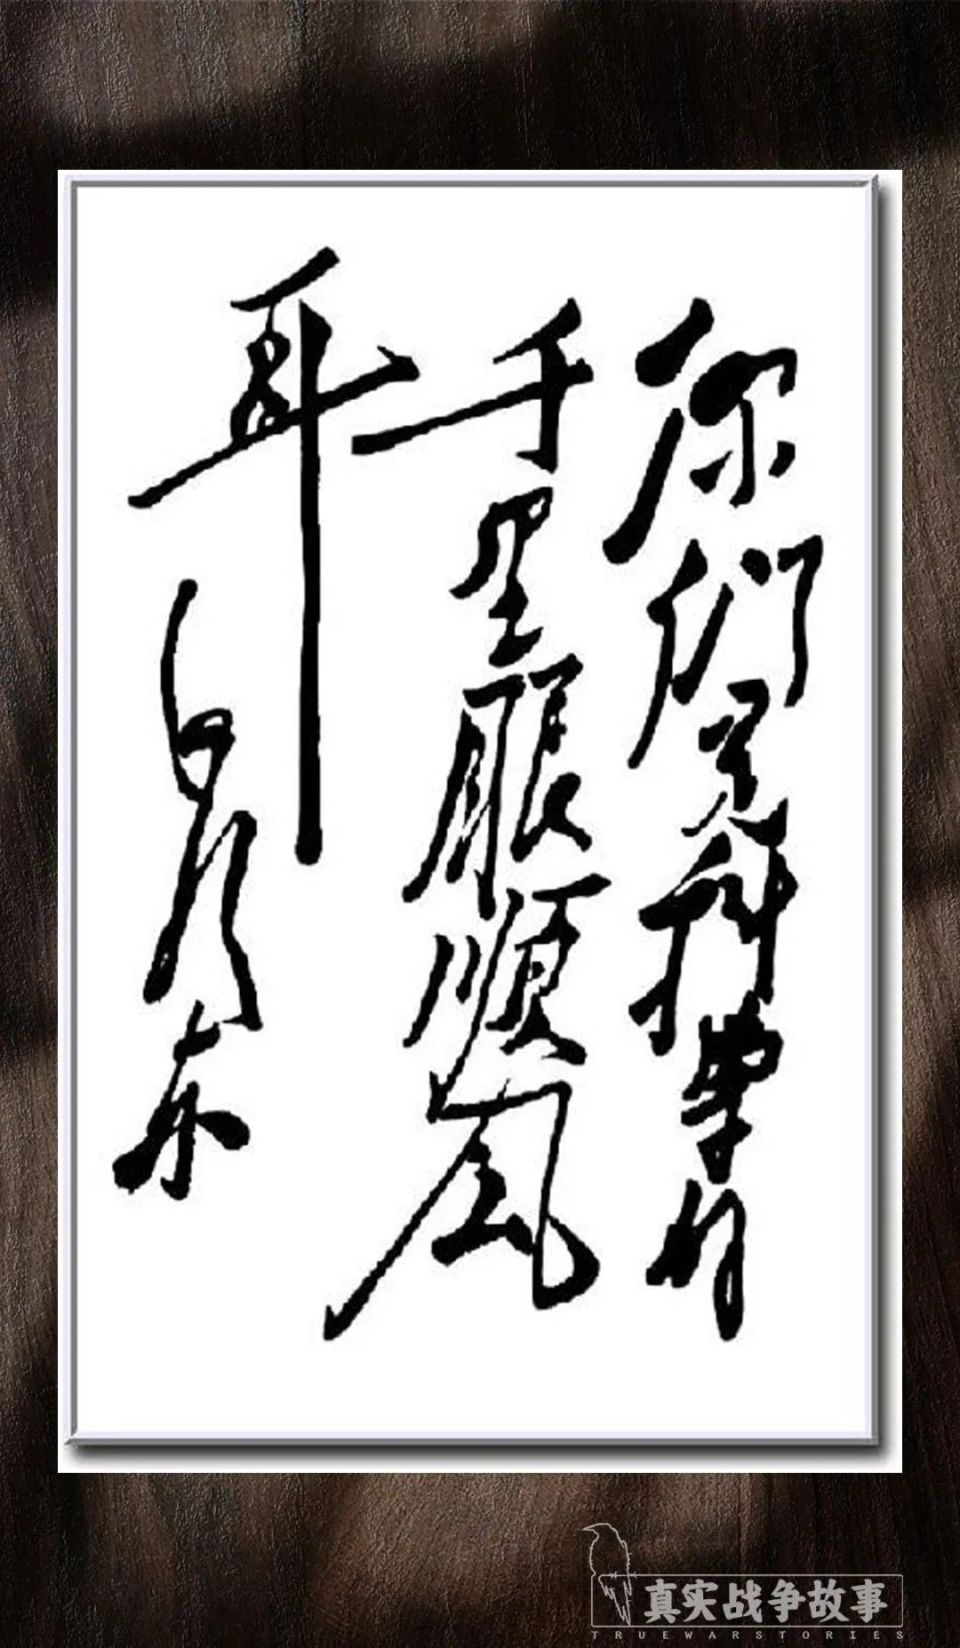 你們是科學的
千里眼順風
耳
毛泽东
真实战争故事
TRUEWARSTORIES